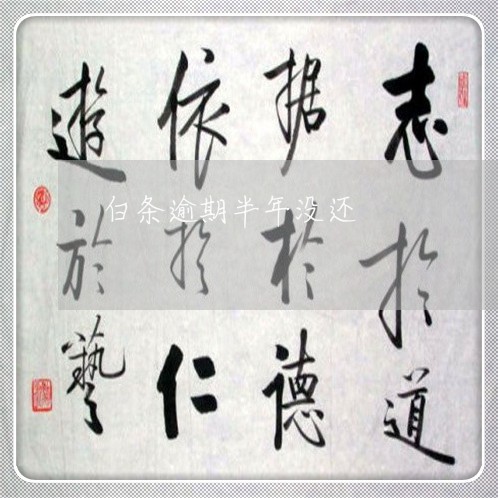 志於道
据於德
依於仁
遊於藝
白条逾期半年没还